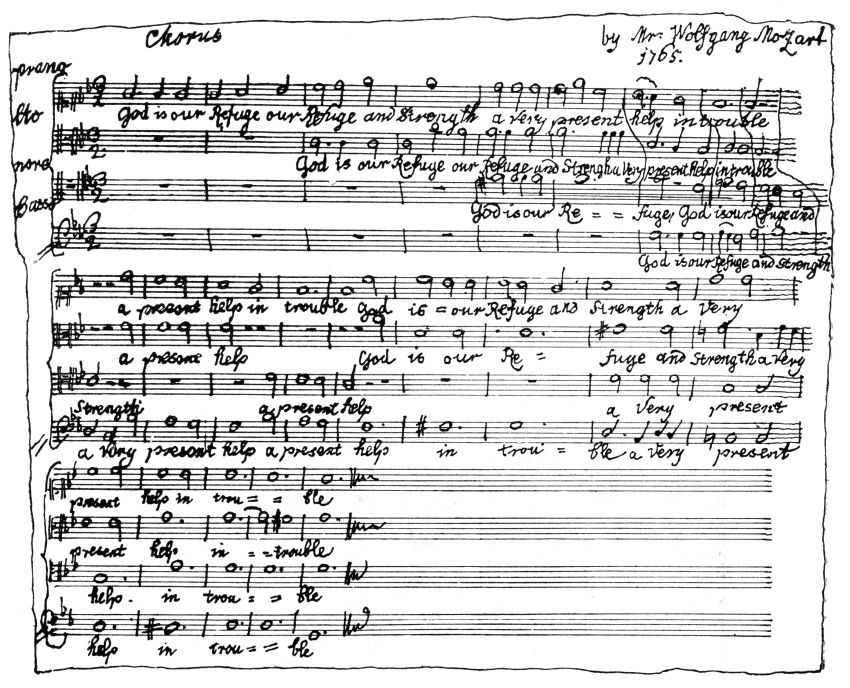 Chorus
by Mr. Wolfgang Mozart
1765.
prano
lto
nore
Basso
God is our Refuge our Refuge and Strength a very present help in trouble
God is our Refuge our Refuge and Strengh a Very present help in trouble
God is our Re = = fuge, God is our Refuge and
God is our Refuge and Strength
a present help in trouble God is = our Refuge and Strength a Very
a present help God is our Re = fuge and Strength a Very
Strength a present help a Very present
a very present help a present help in trou = ble a Very present
present help in trou = = ble
present help in = = trouble
help. in trou = = ble
help in trou = = ble